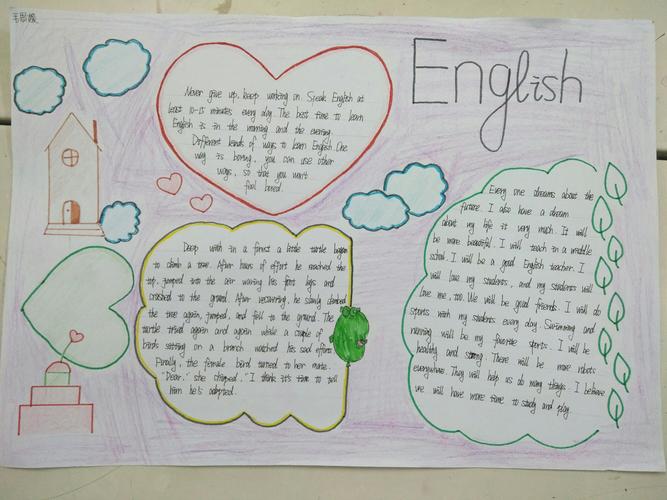 毛思媛
English
Never give up, keep working on. Speak English at
least 10-15 minutes every day. The best time to learn
English is in the morning and the evening.
Different kinds of ways to learn English. One
way is boring, you can use other
ways, so that you won't
feel bored.
Deep with in a forest a little turtle began
to climb a tree. After hours of effort he reached the
top, jumped into the air waving his front legs and
crashed to the ground. After recovering, he slowly climbed
the tree again, jumped, and fell to the ground. The
turtle tried again and again while a couple of
birds sitting on a branch watched his sad efforts.
Finally, the female bird turned to her mate.
"Dear," she chirped. "I think it's time to tell
him he's adopted.
Every one dreams about the
future. I also have a dream
about my life it very much. It will
be more beautiful. I will teach in a middle
school. I will be a good English teacher. I
will love my students, and my students will
love me, too. We will be good friends. I will do
sports with my students every day. Swimming and
running will be my favorite sports. I will be
healthy and strong. There will be more robots
everywhere. They will help us do many things. I believe
we will have more time to study and play.